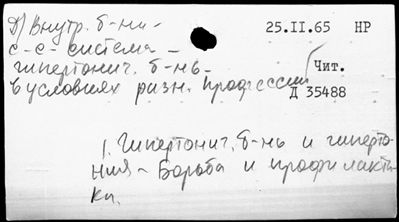 Д) Внутр. б-ни -       25.II.65 НР
с-с-система -
гипертонич. б-нь -
в условиях разн. профессий   Чит.
Д 35488
1. Гипертонич. б-нь и гиперто-
ния - борьба и профилакти-
ка.